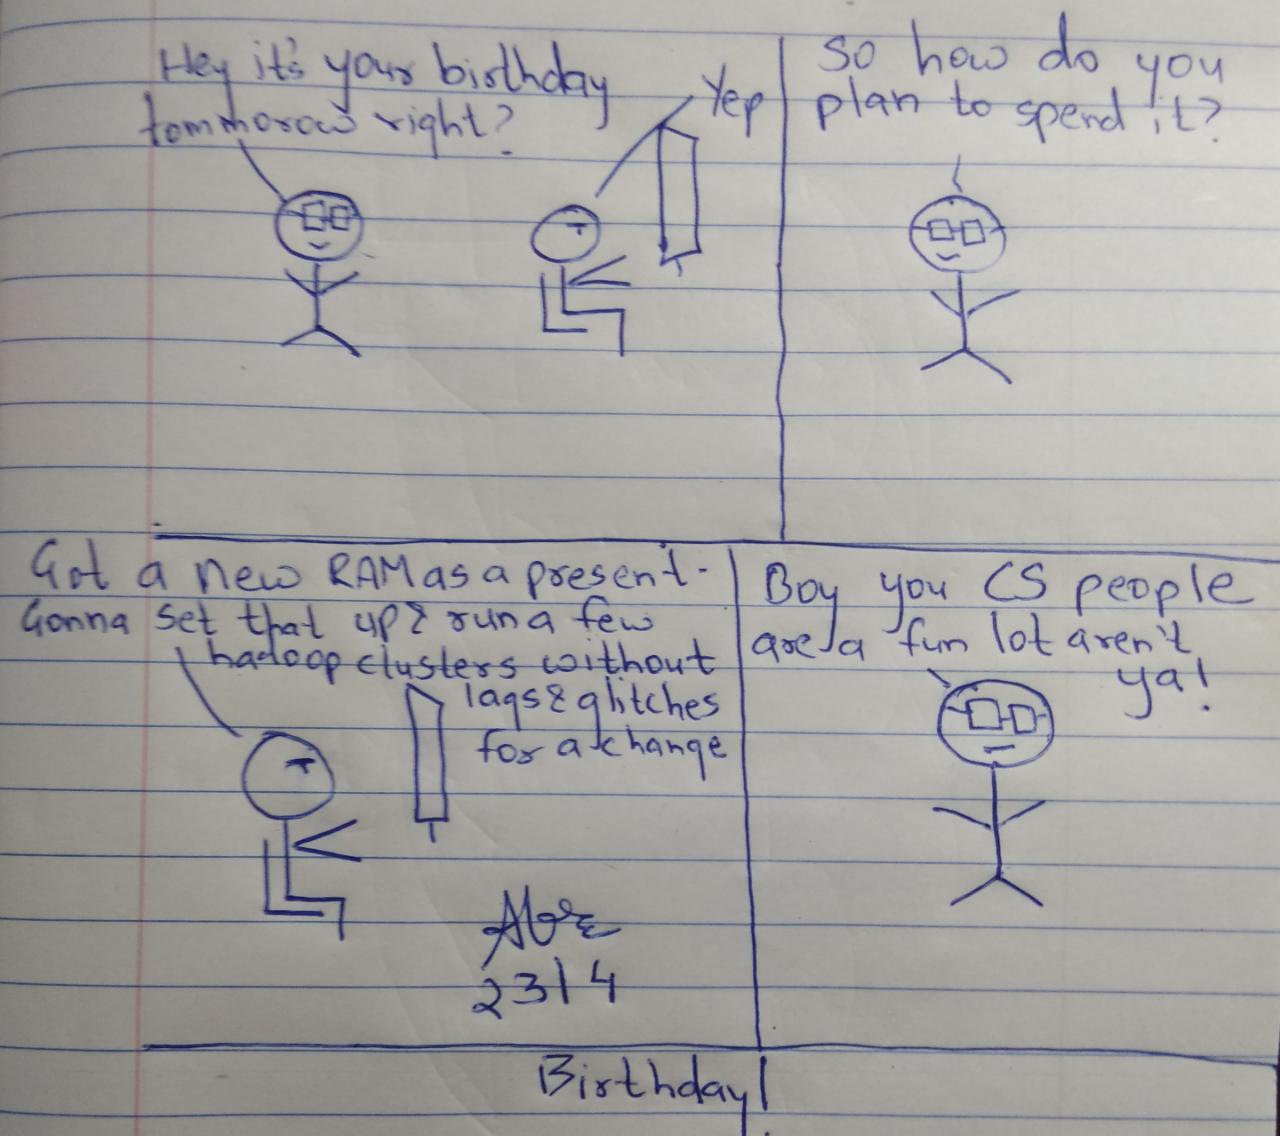 Hey it's your birthday
tommorow right?
Yep
So how do you
plan to spend it?
Got a new RAM as a present.
Gonna set that up & run a few
hadoop clusters without
lags & glitches
for a change
Boy you CS people
are a fun lot aren't
ya!
23/4
Birthday!